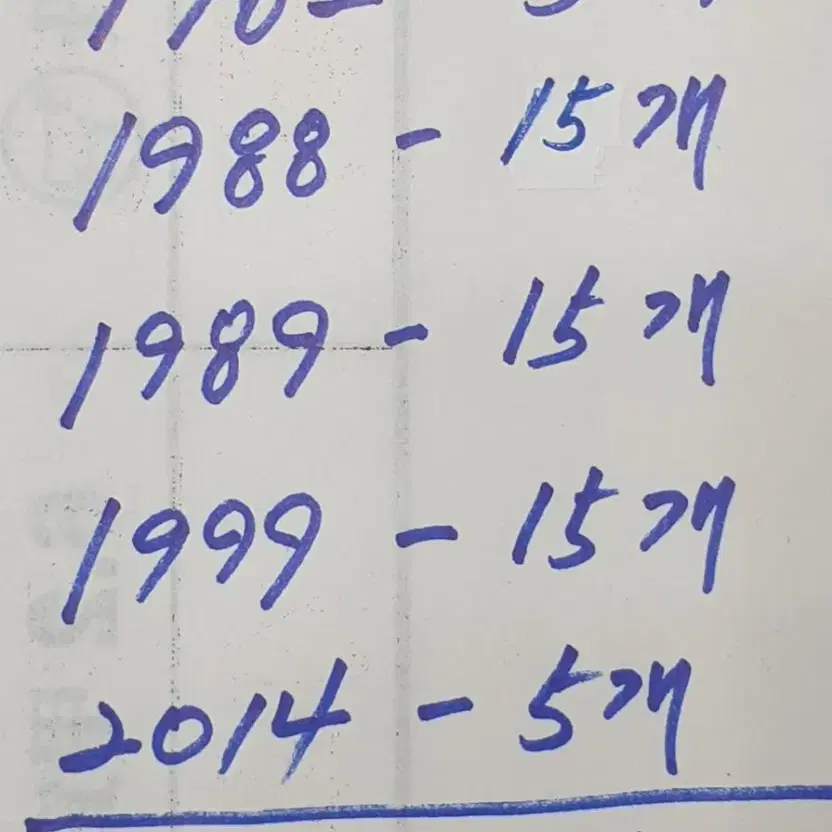 1988 - 15개
1989 - 15개
1999 - 15개
2014 - 5개